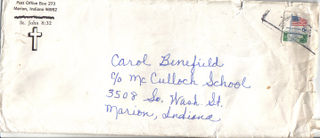 Post Office Box 273
Marion, Indiana 46952
St. John 8:32
Carol Benefield
c/o McCulloch School
3508 So. Wash St.
Marion, Indiana